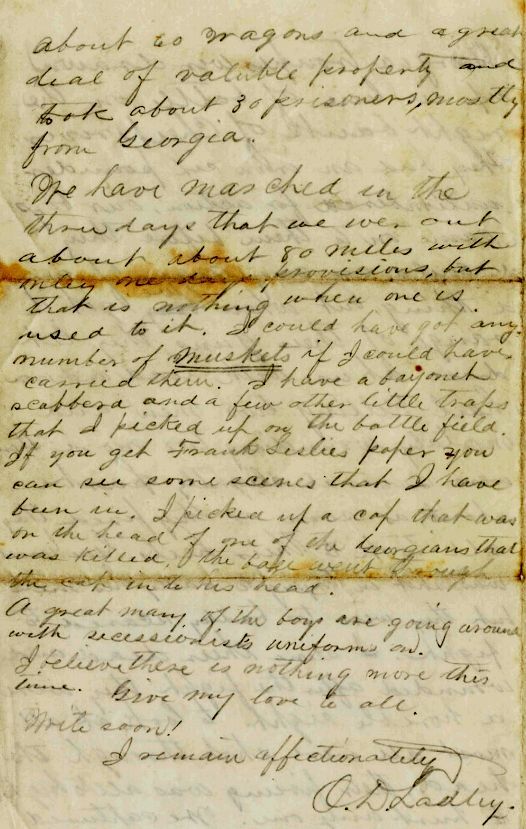 about 20 wagons and a great
deal of valuble property and
took about 30 prisoners, mostly
from Georgia.
We have marched in the
three days that we wer out
about about 80 miles with
only one days provisions, but
that is nothing when one is
used to it. I could have got any
number of muskets if I could have
carried them. I have a bayonet
scabberd and a few other little traps
that I picked up on the battle field.
If you get Frank Leslies paper you
can see some scenes that I have
been in. I picked up a cap that was
on the head of one of the Georgians that
was killed, the ball went through
the cab into his head.
A great many of the boys are going around
with secessionists uniforms on.
I believe there is nothing more this
time. Give my love to all.
Write soon!
I remain affectionately
O. D. Ladley.